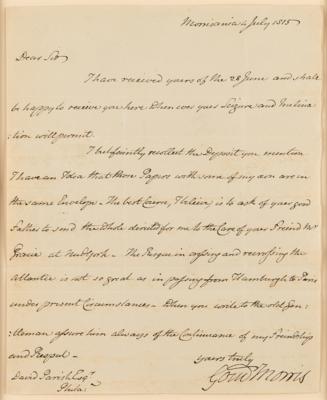 Morrisania 4 July 1815
Dear Sir
I have received yours of the 28 June and shall
be happy to receive you here when ever your Leizure and Inclina
tion will permit.
I but faintly recollect the Deposit you mention
I have an Idea that those Papers with some of my own are in
the same Envelope. The best Course, I believe, is to ask of your good
Father to send the whole directed for me to the Care of your Friend Mr
Gracie at NewYork. The Risque in crossing and recrossing the
Atlantic is not so great as in passing from Hamburgh to Paris
under present Circumstances - When you write to the old Gen:
:tleman assure him always of the Continuance of my Friendship
and Respect -
yours truly
Gouv Morris
David Parish Esqr
Phila: